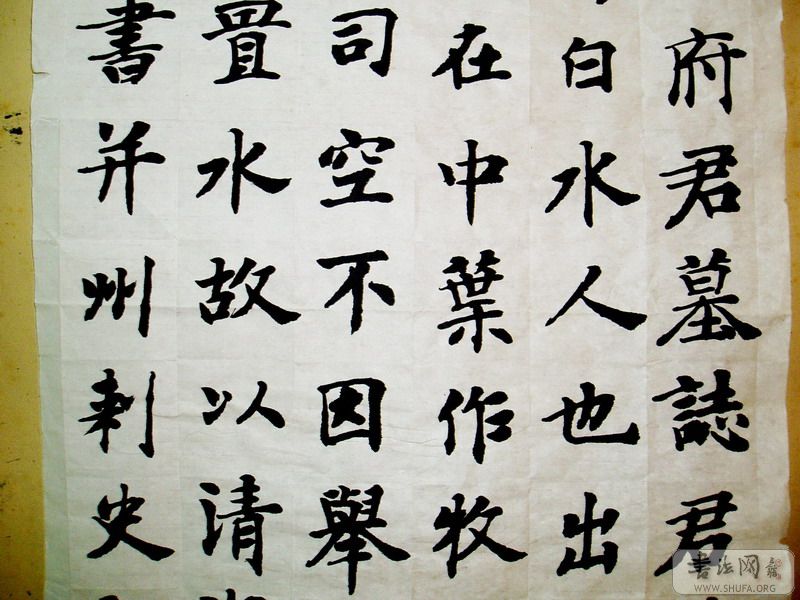 府君墓誌君
白水人也出
在中葉作牧
司空不因舉
置水故以清
書并州刺史
书法网
WWW.SHUFA.ORG